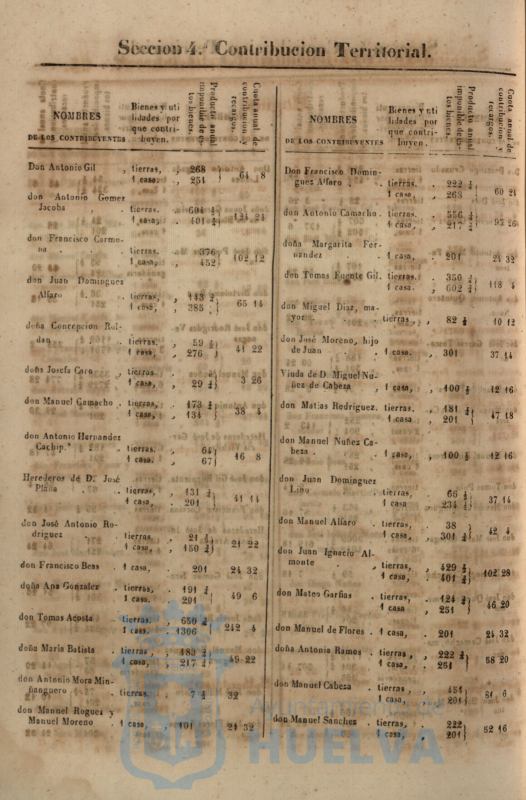 Seccion 4.ª Contribucion Territorial.
NOMBRES
DE LOS CONTRIBUYENTES
Bienes y uti
lidades por
que contri-
buyen.
Producto anual
imponible de es-
tos bienes.
Cuota anual de
contribucion y
recargos.
Don Antonio Gil , tierras, , 268
1 casa. , 251 } 64 8
don Antonio Gomez
Jacoba , . tierras. , 604 ½
1 casa, , 401 ½ } 124 24
don Francisco Carmo-
na . . . tierras. 376
1 casa, , 452 } 102 12
don Juan Dominguez
Alfaro . . tierras, , 143 ½
1 casa, , 385 } 65 14
doña Concepcion Rol-
dan . . tierras. , 59 ½
1 casa, , 276 } 41 22
doña Josefa Caro , tierras.
1 casa, , 29 ½ } 3 26
don Manuel Camacho . tierras, , 173 ½
1 casa, , 134 } 38 4
don Antonio Hernandez
Cachip.º . . tierras. , 64
1 casa. , 67 } 16 8
Herederos de D. José
Plana . . tierras, , 131 ½
1 casa, . 201 } 41 14
don José Antonio Ro-
driguez . . tierras, 21 ½
1 casa, , 150 ½ } 21 22
don Francisco Beas . 1 casa, . 201 24 32
doña Ana Gonzalez . tierras, , 191 ½
1 casa. . 201 } 49 6
don Tomas Acosta . tierras. . 650 ½
1 casa. . 1306 } 242 4
doña Maria Batista . tierras, , 183 ½
1 casa, , 217 ½ } 49 22
don Antonio Mora Min-
ñanguero . . tierras. . 7 ½ 32
don Manuel Roguez y
Manuel Moreno . 1 casa, , 101 24 32
NOMBRES
DE LOS CONTRIBUYENTES
Bienes y uti
lidades por
que contri-
buyen.
Producto anual
imponible de es-
tos bienes.
Cuota anual de
contribucion y
recargos.
Don Francisco Domin-
guez Alfaro . . tierras. . 222 ½
1 casa, . 268 } 60 24
don Antonio Camacho . tierras. . 556 ½
1 casa, . 217 ½ } 95 26
doña Margarita Fer-
nandez . . 1 casa, . 201 24 32
don Tomas Fuente Gil. tierras. . 350 ½
1 casa. . 602 ½ } 118 4
don Miguel Diaz, ma-
yor . . . tierras, , 82 ½ 10 12
don José Moreno, hijo
de Juan . . 1 casa. , 301 37 14
Viuda de D. Miguel Nu-
ñez de Cabeza , 1 casa, , 100 ½ 12 16
don Matias Rodriguez. tierras. , 181 ½
1 casa . 201 } 47 18
don Manuel Nuñez Ca-
beza . . . 1 casa, , 100 ½ 12 16
don Juan Dominguez
Lino . tierras, , 66 ½
1 casa , 234 ½ } 37 14
don Manuel Alfaro . tierras, . 38
1 casa, . 301 ½ } 42 4
don Juan Ignacio Al-
monte , tierras, , 429 ½
1 casa, . 401 ½ } 102 28
don Mateo Garfias . tierras, . 124 ½
1 casa . 251 } 46 20
don Manuel de Flores . 1 casa, . 201 24 32
doña Antonia Ramos . tierras, , 222 ½
1 casa, . 251 } 58 20
don Manuel Cabeza . tierras, , 451
1 casa, . 201 } 81 6
don Manuel Sanchez . tierras, . 222
1 casa, . 201 } 52 16
Ayuntamiento de
HUELVA